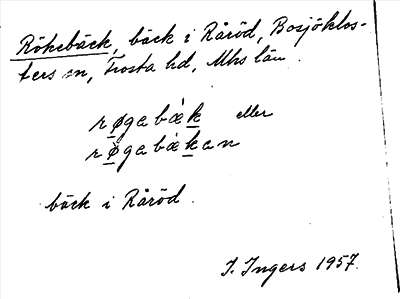 Rökebäck, bäck i Råröd, Bosjöklos-
ters sn, Frosta hd, Mhs län.
røgabæ̀k eller
rø̀gabækan
bäck i Råröd.
I. Ingers 1957.